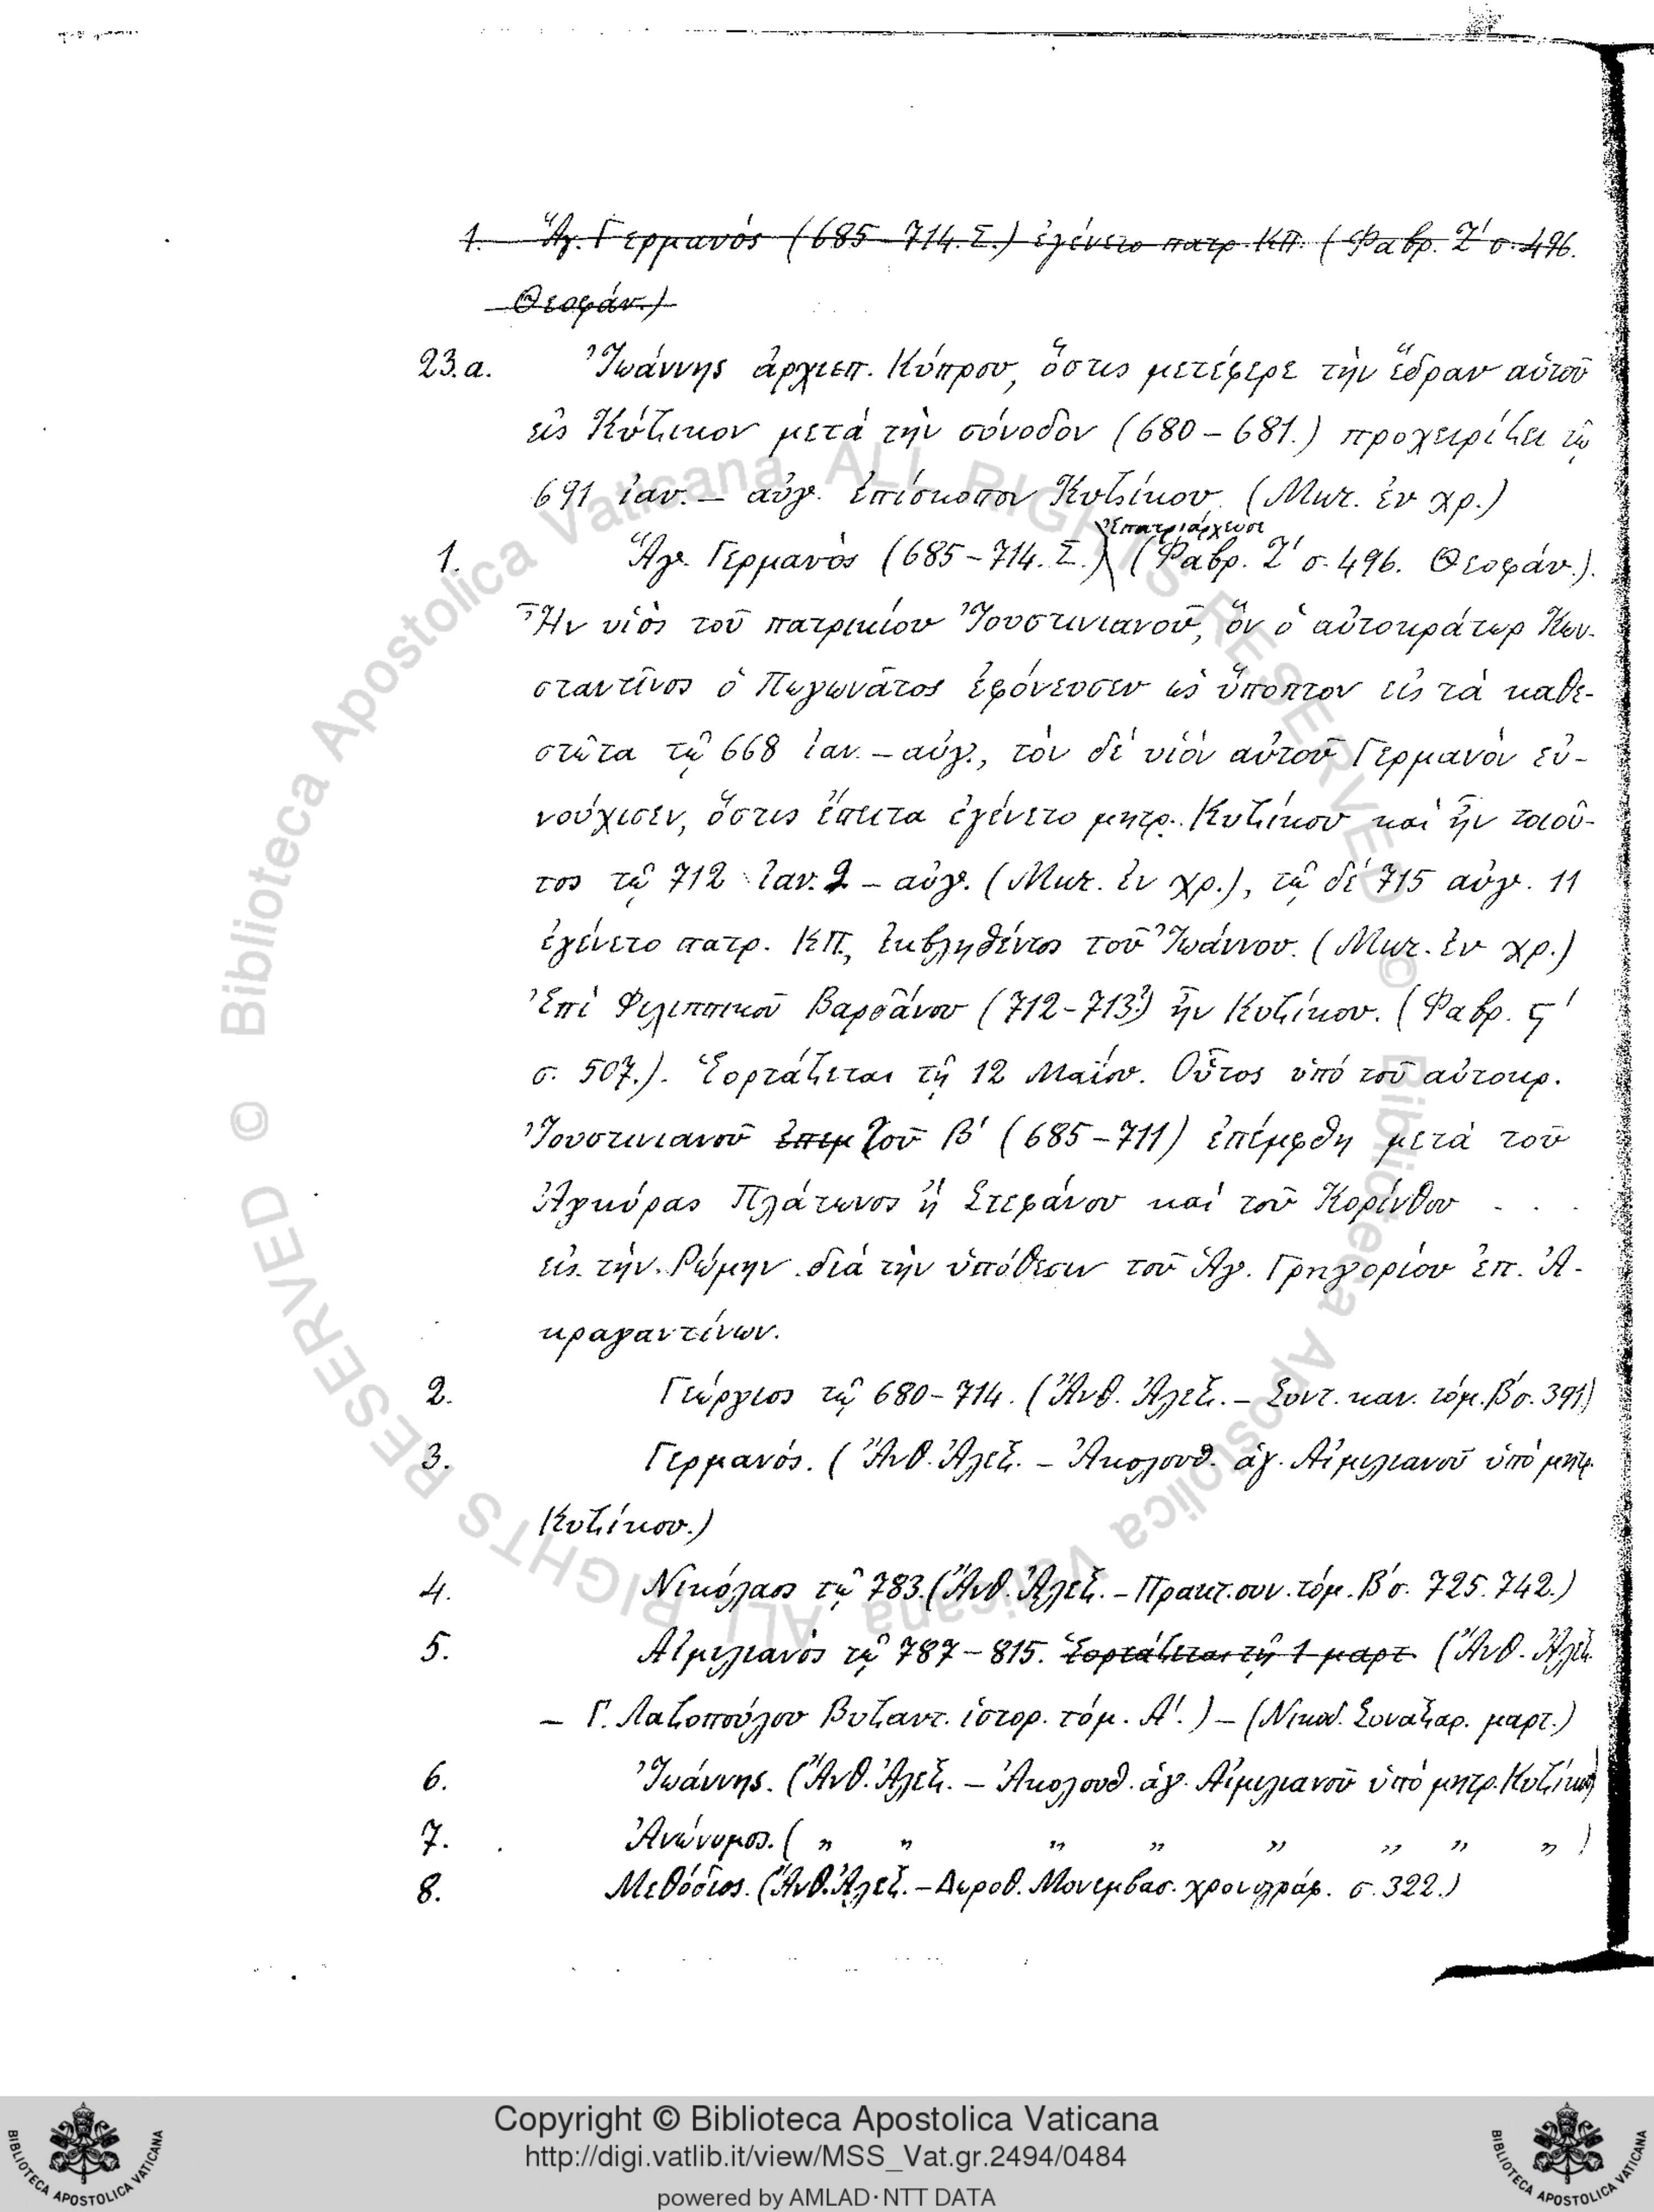 1. Ἅγ. Γερμανός (685–714. Σ.) ἐγένετο πατρ. ΚΠ. (Φαβρ. Ζ' σ. 496.
Θεοφάν.)
23.α. Ἰωάννης ἀρχιεπ. Κύπρου, ὅστις μετέφερε τὴν ἕδραν αὐτοῦ
εἰς Κύζικον μετά τὴν σύνοδον (680–681.) προχειρίζει τῷ
691 ἰαν. – αὐγ. ἐπίσκοπον Κυζίκου. (Μωτ. ἐν χρ.)
Ἐπατριάρχευσε
1. Ἅγ. Γερμανὸς (685–714. Σ.) (Φαβρ. Ζ' σ. 496. Θεοφάν.).
Ἦν υἱὸς τοῦ πατρικίου Ἰουστινιανοῦ, ὅν ὁ αὐτοκράτωρ Κων-
σταντῖνος ὁ Πωγωνᾶτος ἐφόνευσεν ὡς ὕποπτον εἰς τὰ καθε-
στῶτα τῷ 668 ἰαν. – αὐγ., τὸν δέ υἱόν αὐτοῦ Γερμανόν εὐ-
νούχισεν, ὅστις ἔπειτα ἐγένετο μητρ. Κυζίκου καί ἦν τοιοῦ-
τος τῷ 712 ἰαν. 2 – αὐγ. (Μωτ. ἐν χρ.), τῷ δέ 715 αὐγ. 11
ἐγένετο πατρ. ΚΠ., ἐκβληθέντος τοῦ Ἰωάννου. (Μωτ. ἐν χρ.)
Ἐπὶ Φιλιππικοῦ Βαρδάνου (712–713?) ἦν Κυζίκου. (Φαβρ. ς'
σ. 507.). Ἑορτάζεται τῇ 12 Μαΐου. Οὗτος ὑπό τοῦ αὐτοκρ.
Ἰουστινιανοῦ ἐπεμ τοῦ Β' (685–711) ἐπέμφθη μετά τοῦ
Ἀγκύρας Πλάτωνος ἢ Στεφάνου καί τοῦ Κορίνθου . . .
εἰς τὴν Ῥώμην διά τὴν ὑπόθεσιν τοῦ Ἁγ. Γρηγορίου ἐπ. Ἀ-
κραγαντίνων.
2. Γεώργιος τῷ 680–714. (Ἄνθ. Ἀλεξ. – Συντ. καν. τόμ. Β' σ. 391)
3. Γερμανός. (Ἄνθ. Ἀλεξ. – Ἀκολουθ. ἁγ. Αἰμιλιανοῦ ὑπό μητρ.
Κυζίκου.)
4. Νικόλαος τῷ 783. (Ἄνθ. Ἀλεξ. – Πρακτ. συν. τόμ. Β' σ. 725. 742.)
5. Αἰμιλιανὸς τῷ 787–815. Ἑορτάζεται τῇ 1 μαρτ. (Ἄνθ. Ἀλεξ.
– Γ. Λαζοπούλου Βυζαντ. ἱστορ. τόμ. Α'.) – (Νικοδ. Συναξαρ. μαρτ.)
6. Ἰωάννης. (Ἄνθ. Ἀλεξ. – Ἀκολουθ. ἁγ. Αἰμιλιανοῦ ὑπό μητρ. Κυζίκου)
7. Ἀνώνυμος. ( „ „ „ „ „ „ „ „ )
8. Μεθόδιος. (Ἄνθ. Ἀλεξ. – Δωροθ. Μονεμβασ. χρονογράφ. σ. 322.)
© Biblioteca Apostolica Vaticana ALL RIGHTS RESERVED
© Biblioteca Apostolica Vaticana ALL RIGHTS RESERVED
Copyright © Biblioteca Apostolica Vaticana
http://digi.vatlib.it/view/MSS_Vat.gr.2494/0484
powered by AMLAD·NTT DATA
BIBLIOTECA APOSTOLICA VATICANA
BIBLIOTECA APOSTOLICA VATICANA